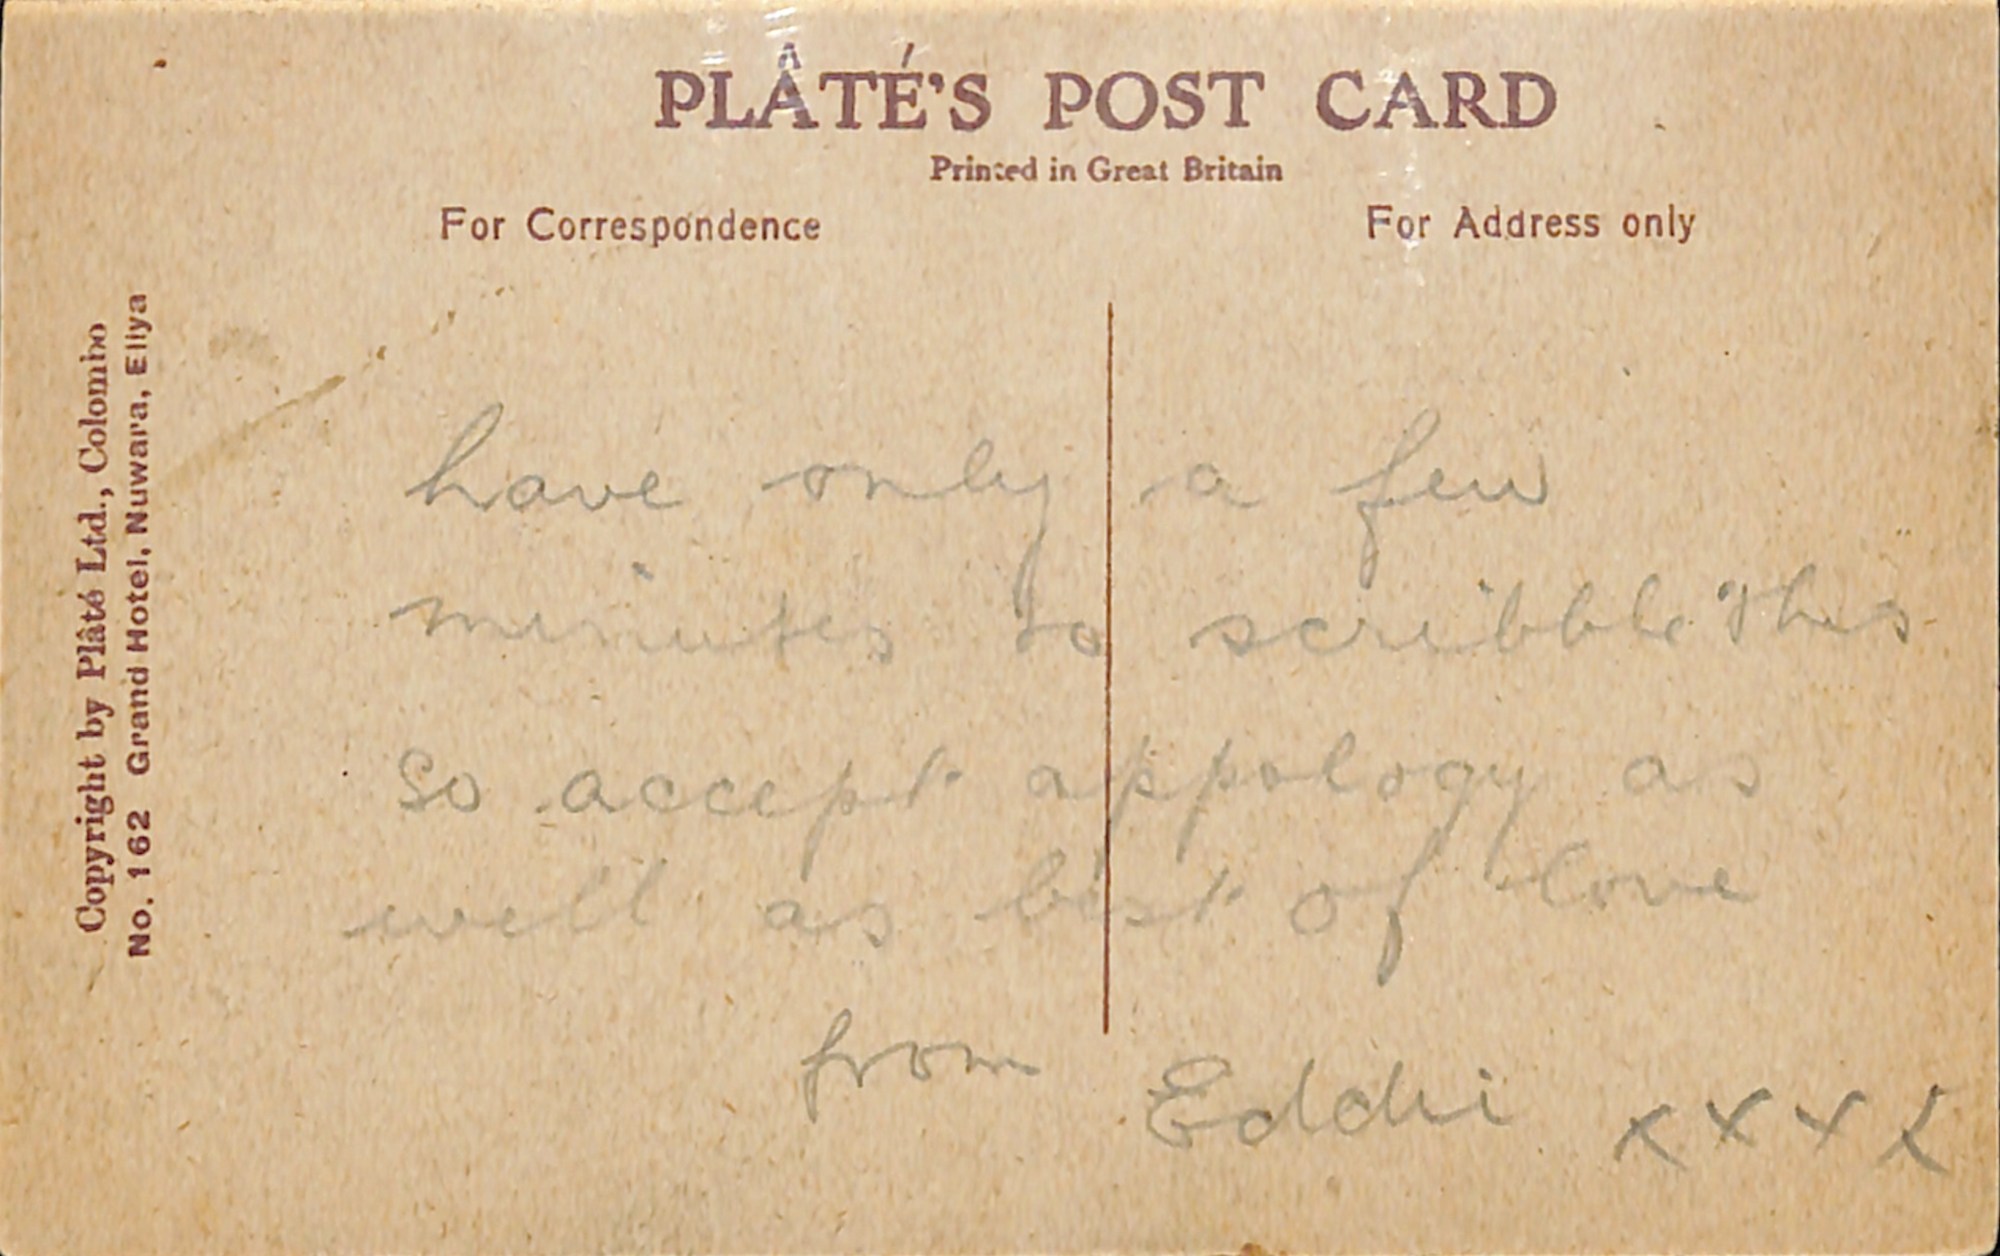 PLÂTÉ'S POST CARD
Printed in Great Britain
For Correspondence
For Address only
Copyright by Plâté Ltd., Colombo
No. 162 Grand Hotel, Nuwara, Eliya
have only a few
minutes to scribble this
so accept appology as
well as best of love
from Eddi xxxx